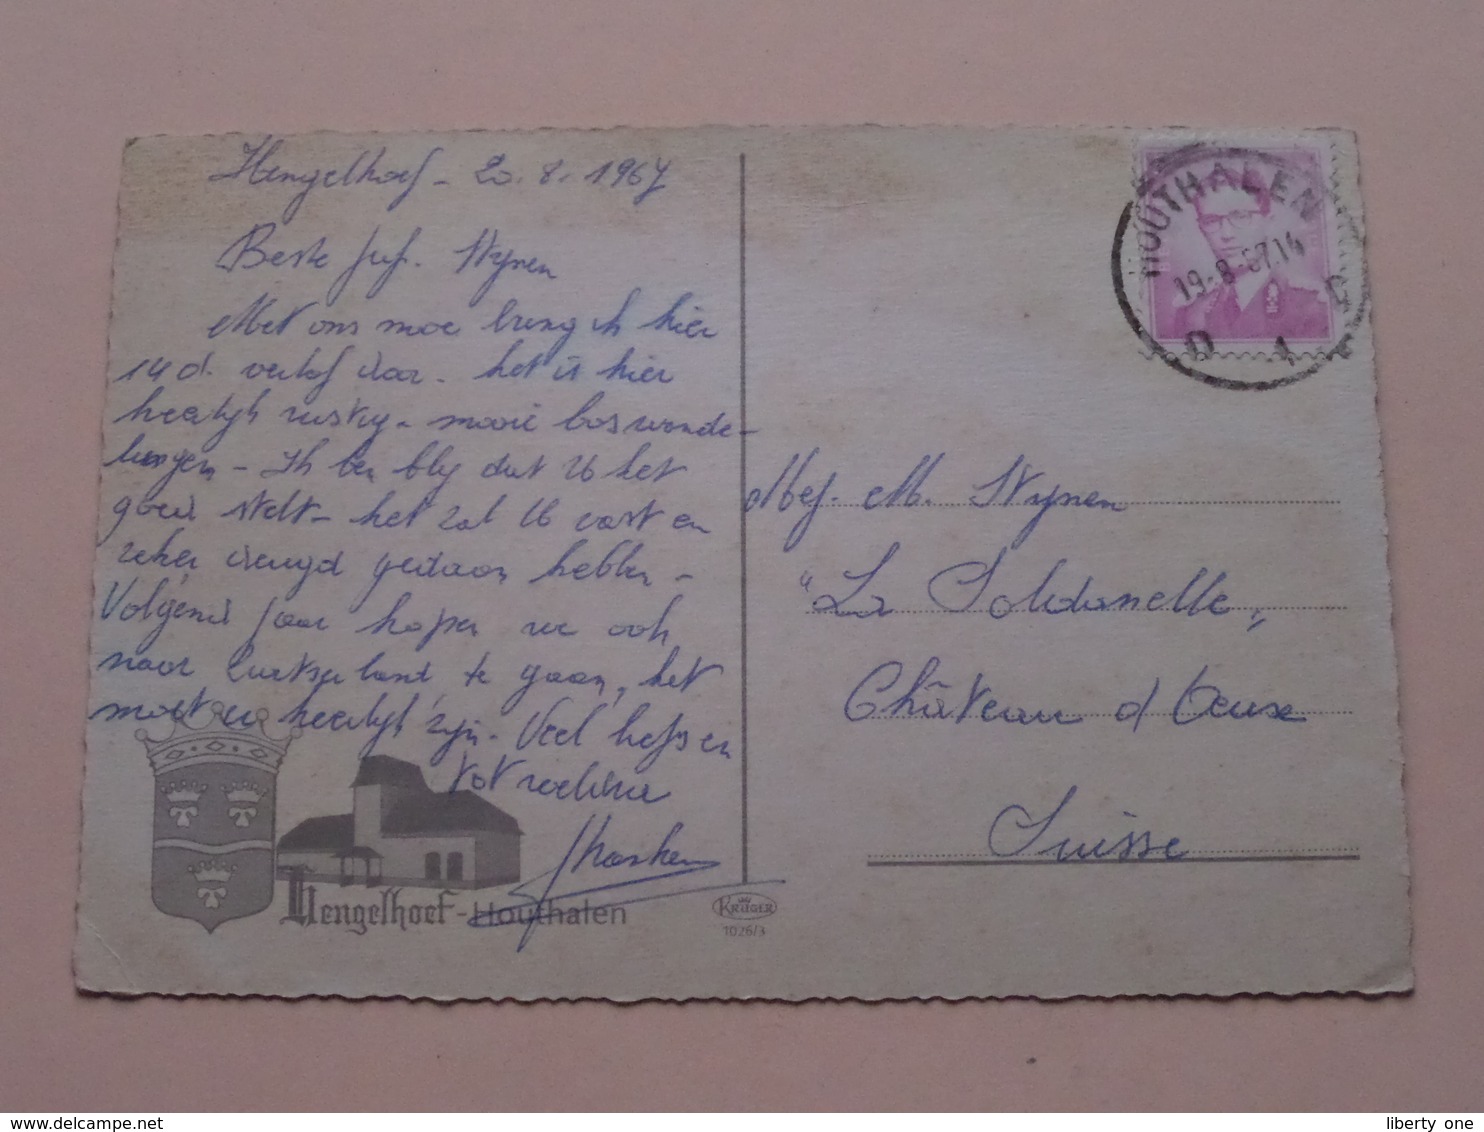 Hengelhoef - 20.8.1967
Beste Juf. Wynen
Met ons moe breng ik hier
14 d. verlof door. Het is hier
heerlijk rustig - mooie boswande-
lingen - Ik ben bly dat U het
goed stelt - het zal U vast en
zeker deugd gedaan hebben -
Volgend jaar hopen we ook
naar Zwitserland te gaan, het
moet er heerlijk zijn. Veel liefs en
tot weldra
HOUTHALEN
19-8-67.14
D 1 D
Mej. M. Wynen
"La Soldanelle"
Château d'Oeux
Suisse
Hengelhoef - Houthalen
KRÜGER
1026/3
www.delcampe.net
liberty one